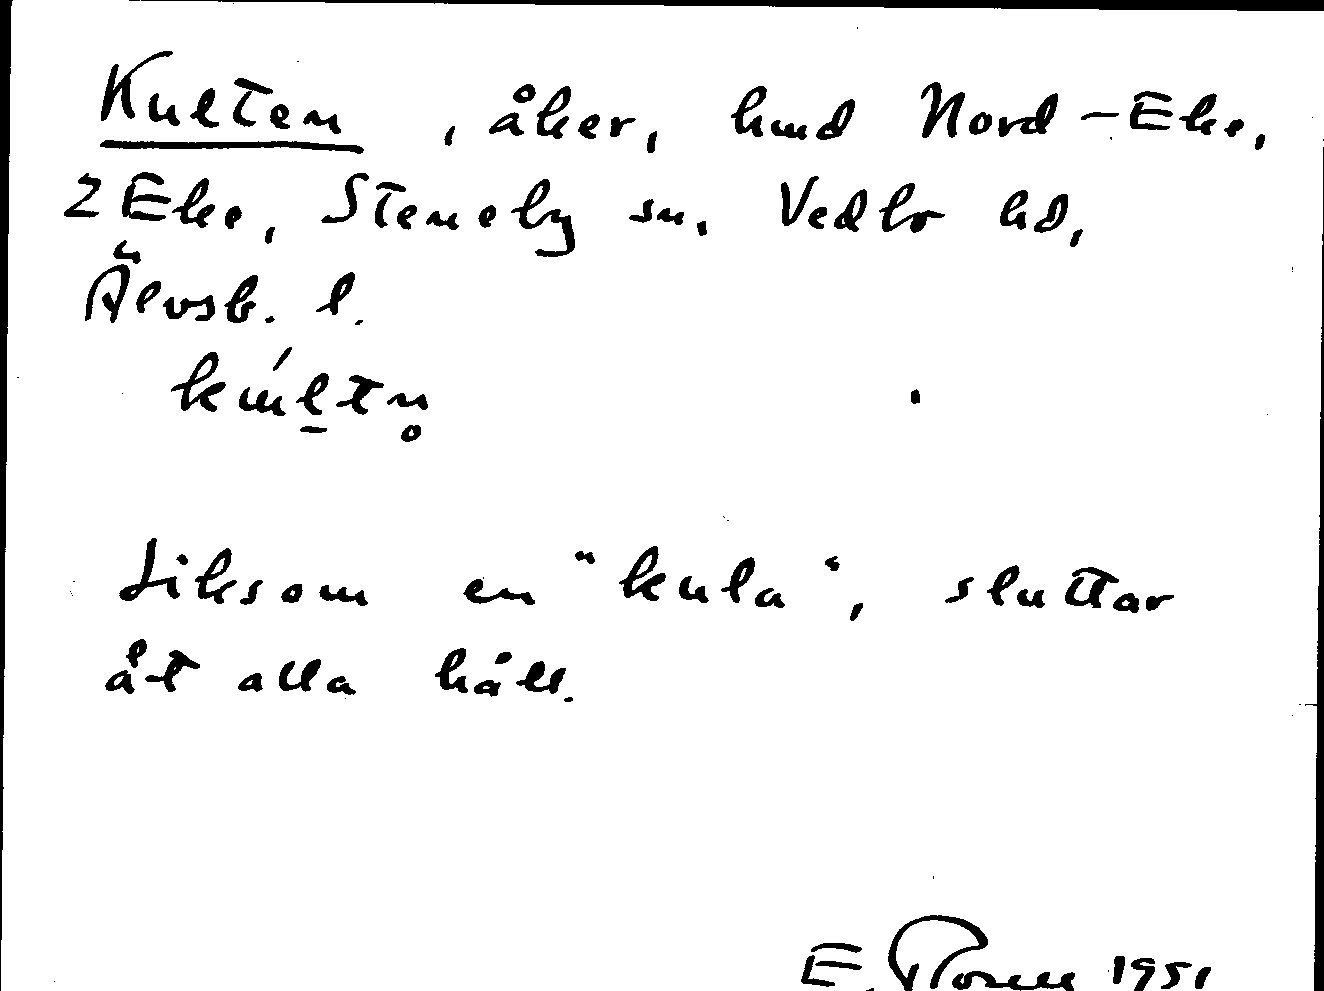 Kulten, åker, hmd Nord-Eke,
2 Eke, Steneby sn. Vedbo hd,
Älvsb. l.
Liksom en "kula", sluttar
åt alla håll.
E. 1951